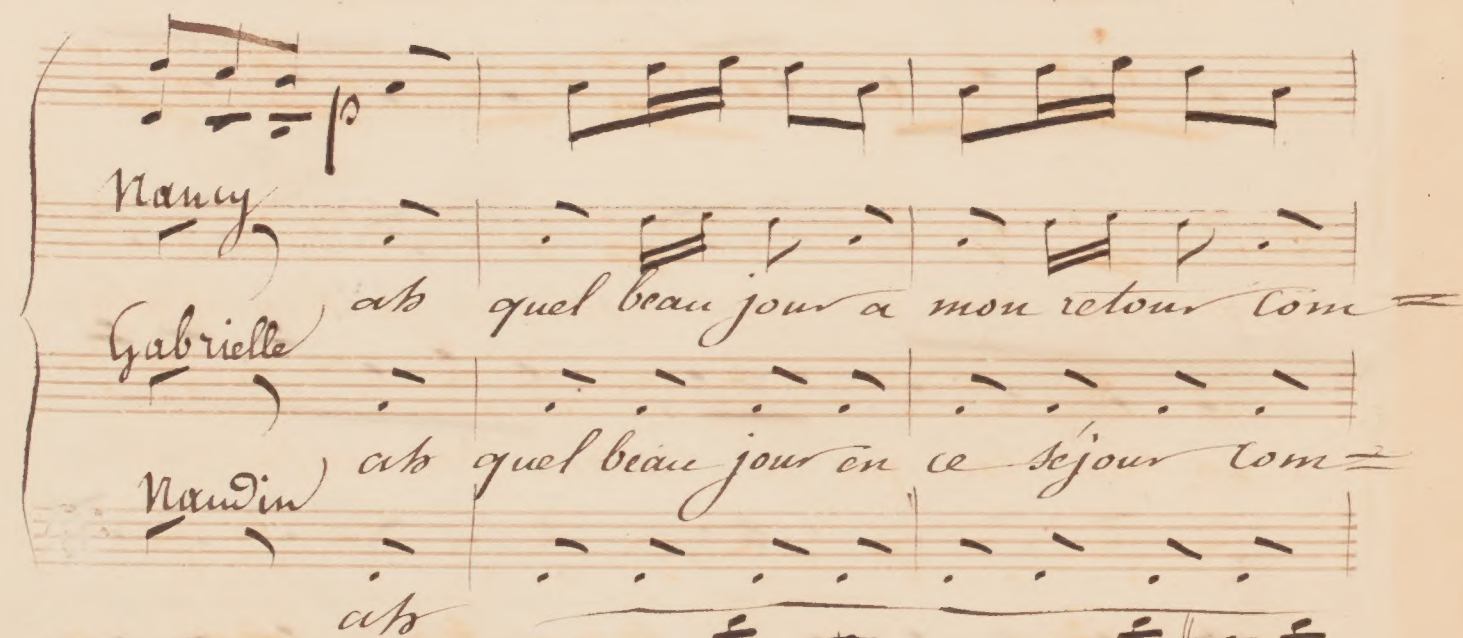 p
Nancy
ah quel beau jour a mon retour com=
Gabrielle
ah quel beau jour en ce séjour com=
Naudin
ah